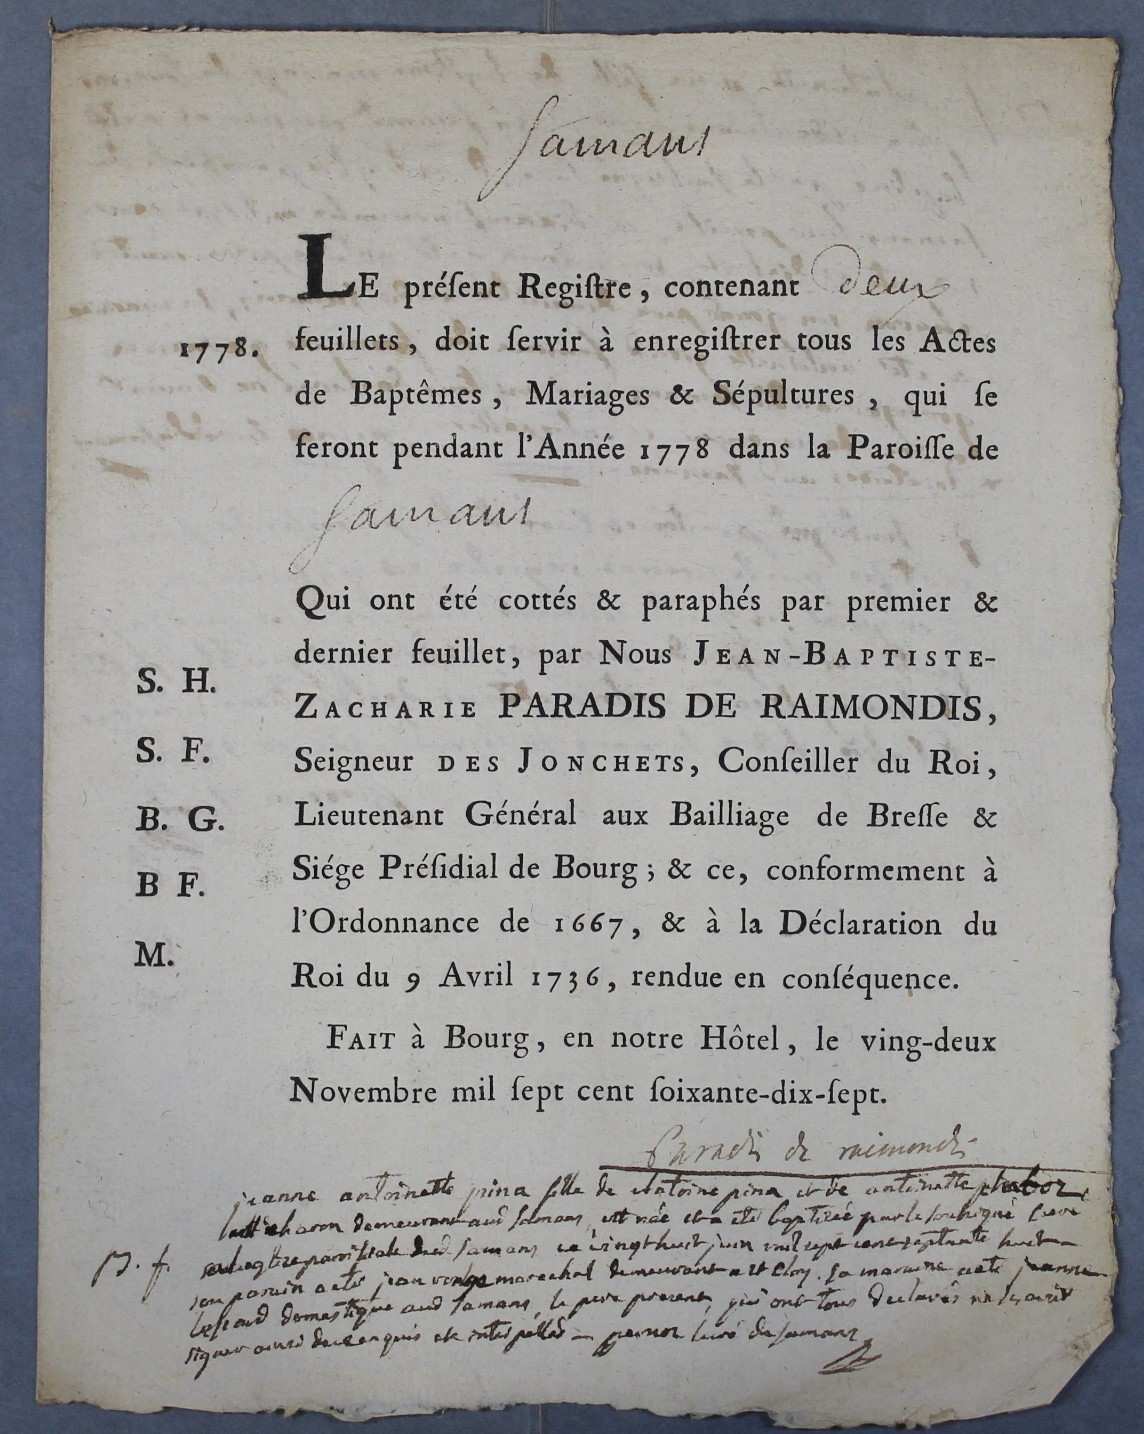 Samans
LE préſent Regiſtre, contenant deux
1778. feuillets, doit ſervir à enregiſtrer tous les Actes
de Baptêmes, Mariages & Sépultures, qui ſe
feront pendant l'Année 1778 dans la Paroiſſe de
Samans
Qui ont été cottés & paraphés par premier &
dernier feuillet, par Nous JEAN-BAPTISTE-
S. H.
ZACHARIE PARADIS DE RAIMONDIS,
S. F.
Seigneur DES JONCHETS, Conſeiller du Roi,
B. G.
Lieutenant Général aux Bailliage de Breſſe &
Siége Préſidial de Bourg; & ce, conformement à
B F.
l'Ordonnance de 1667, & à la Déclaration du
M.
Roi du 9 Avril 1736, rendue en conſéquence.
FAIT à Bourg, en notre Hôtel, le ving-deux
Novembre mil ſept cent ſoixante-dix-ſept.
Paradis de raimondis
jeanne antoinette pina fille de Antoine pina et de antoinette
charon demeurant aud Samans, est née et a été baptizée par le soussigné Curé
B. f. eglize paroissiale dud Samans ce vingthuit juin mil sept cent septante huit
son parain a été jean marechal demeurant a st Eloy. sa maraine a été jeanne
domestique aud Samans, le pere present, qui ont tous declarés ne scavoir
signer ainsi de ce enquis et interpellés curé de Samans